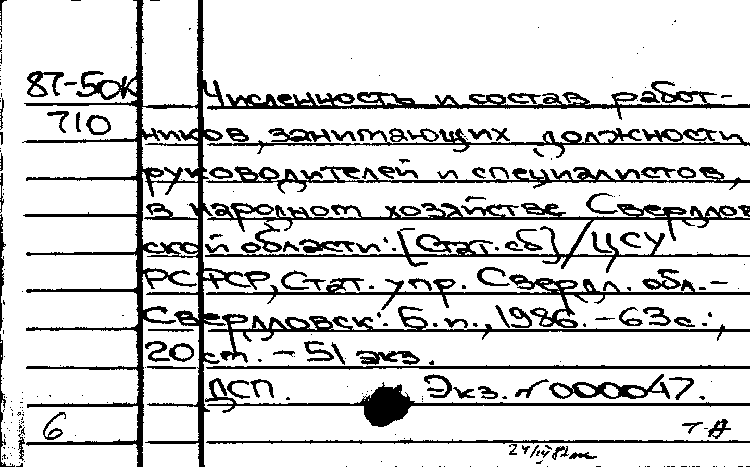 87-50К Численность и состав работ-
710 ников, занимающих должности
руководителей и специалистов,
в народном хозяйстве Свердлов
ской области: [Стат. сб] / ЦСУ
РСФСР, Стат. упр. Свердл. обл.-
Свердловск: Б.п., 1986.-63с.;
20 см. - 51 экз.
ДСП. Экз. № 000047.
6